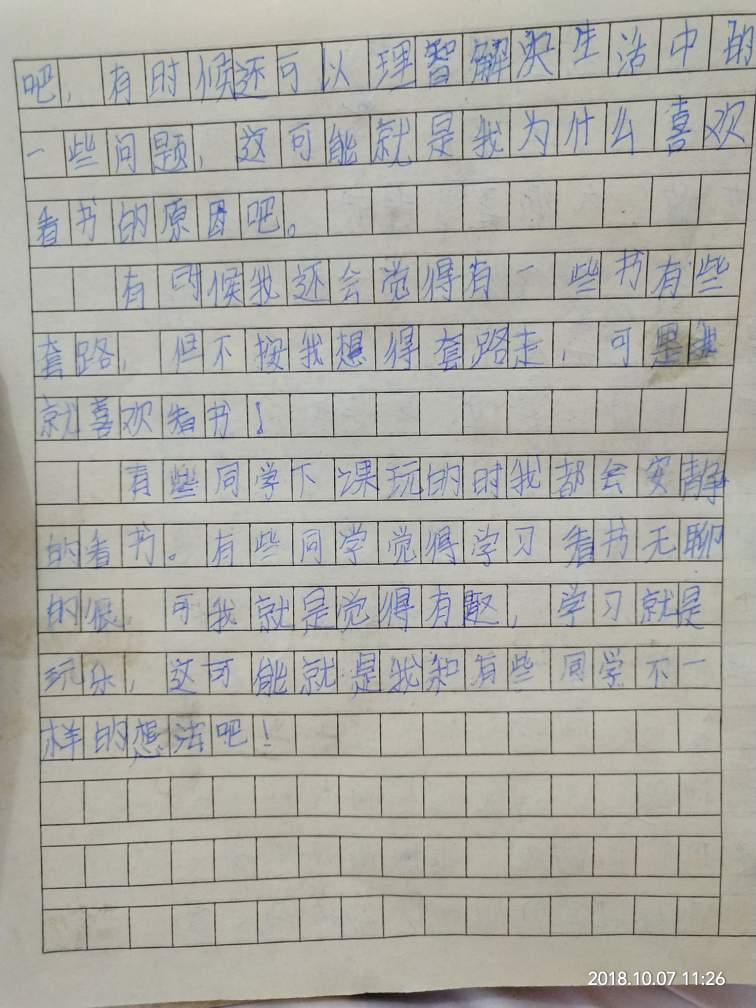 吧，有时候还可以理智解决生活中的
一些问题，这可能就是我为什么喜欢
看书的原因吧。
有时候我还会觉得有一些书有些
套路，但不按我想得套路走，可是我
就喜欢看书！
有些同学下课玩的时我都会安静
的看书。有些同学觉得学习看书无聊
的很，可我就是觉得有趣，学习就是
玩乐，这可能就是我和有些同学不一
样的想法吧！
2018.10.07 11:26